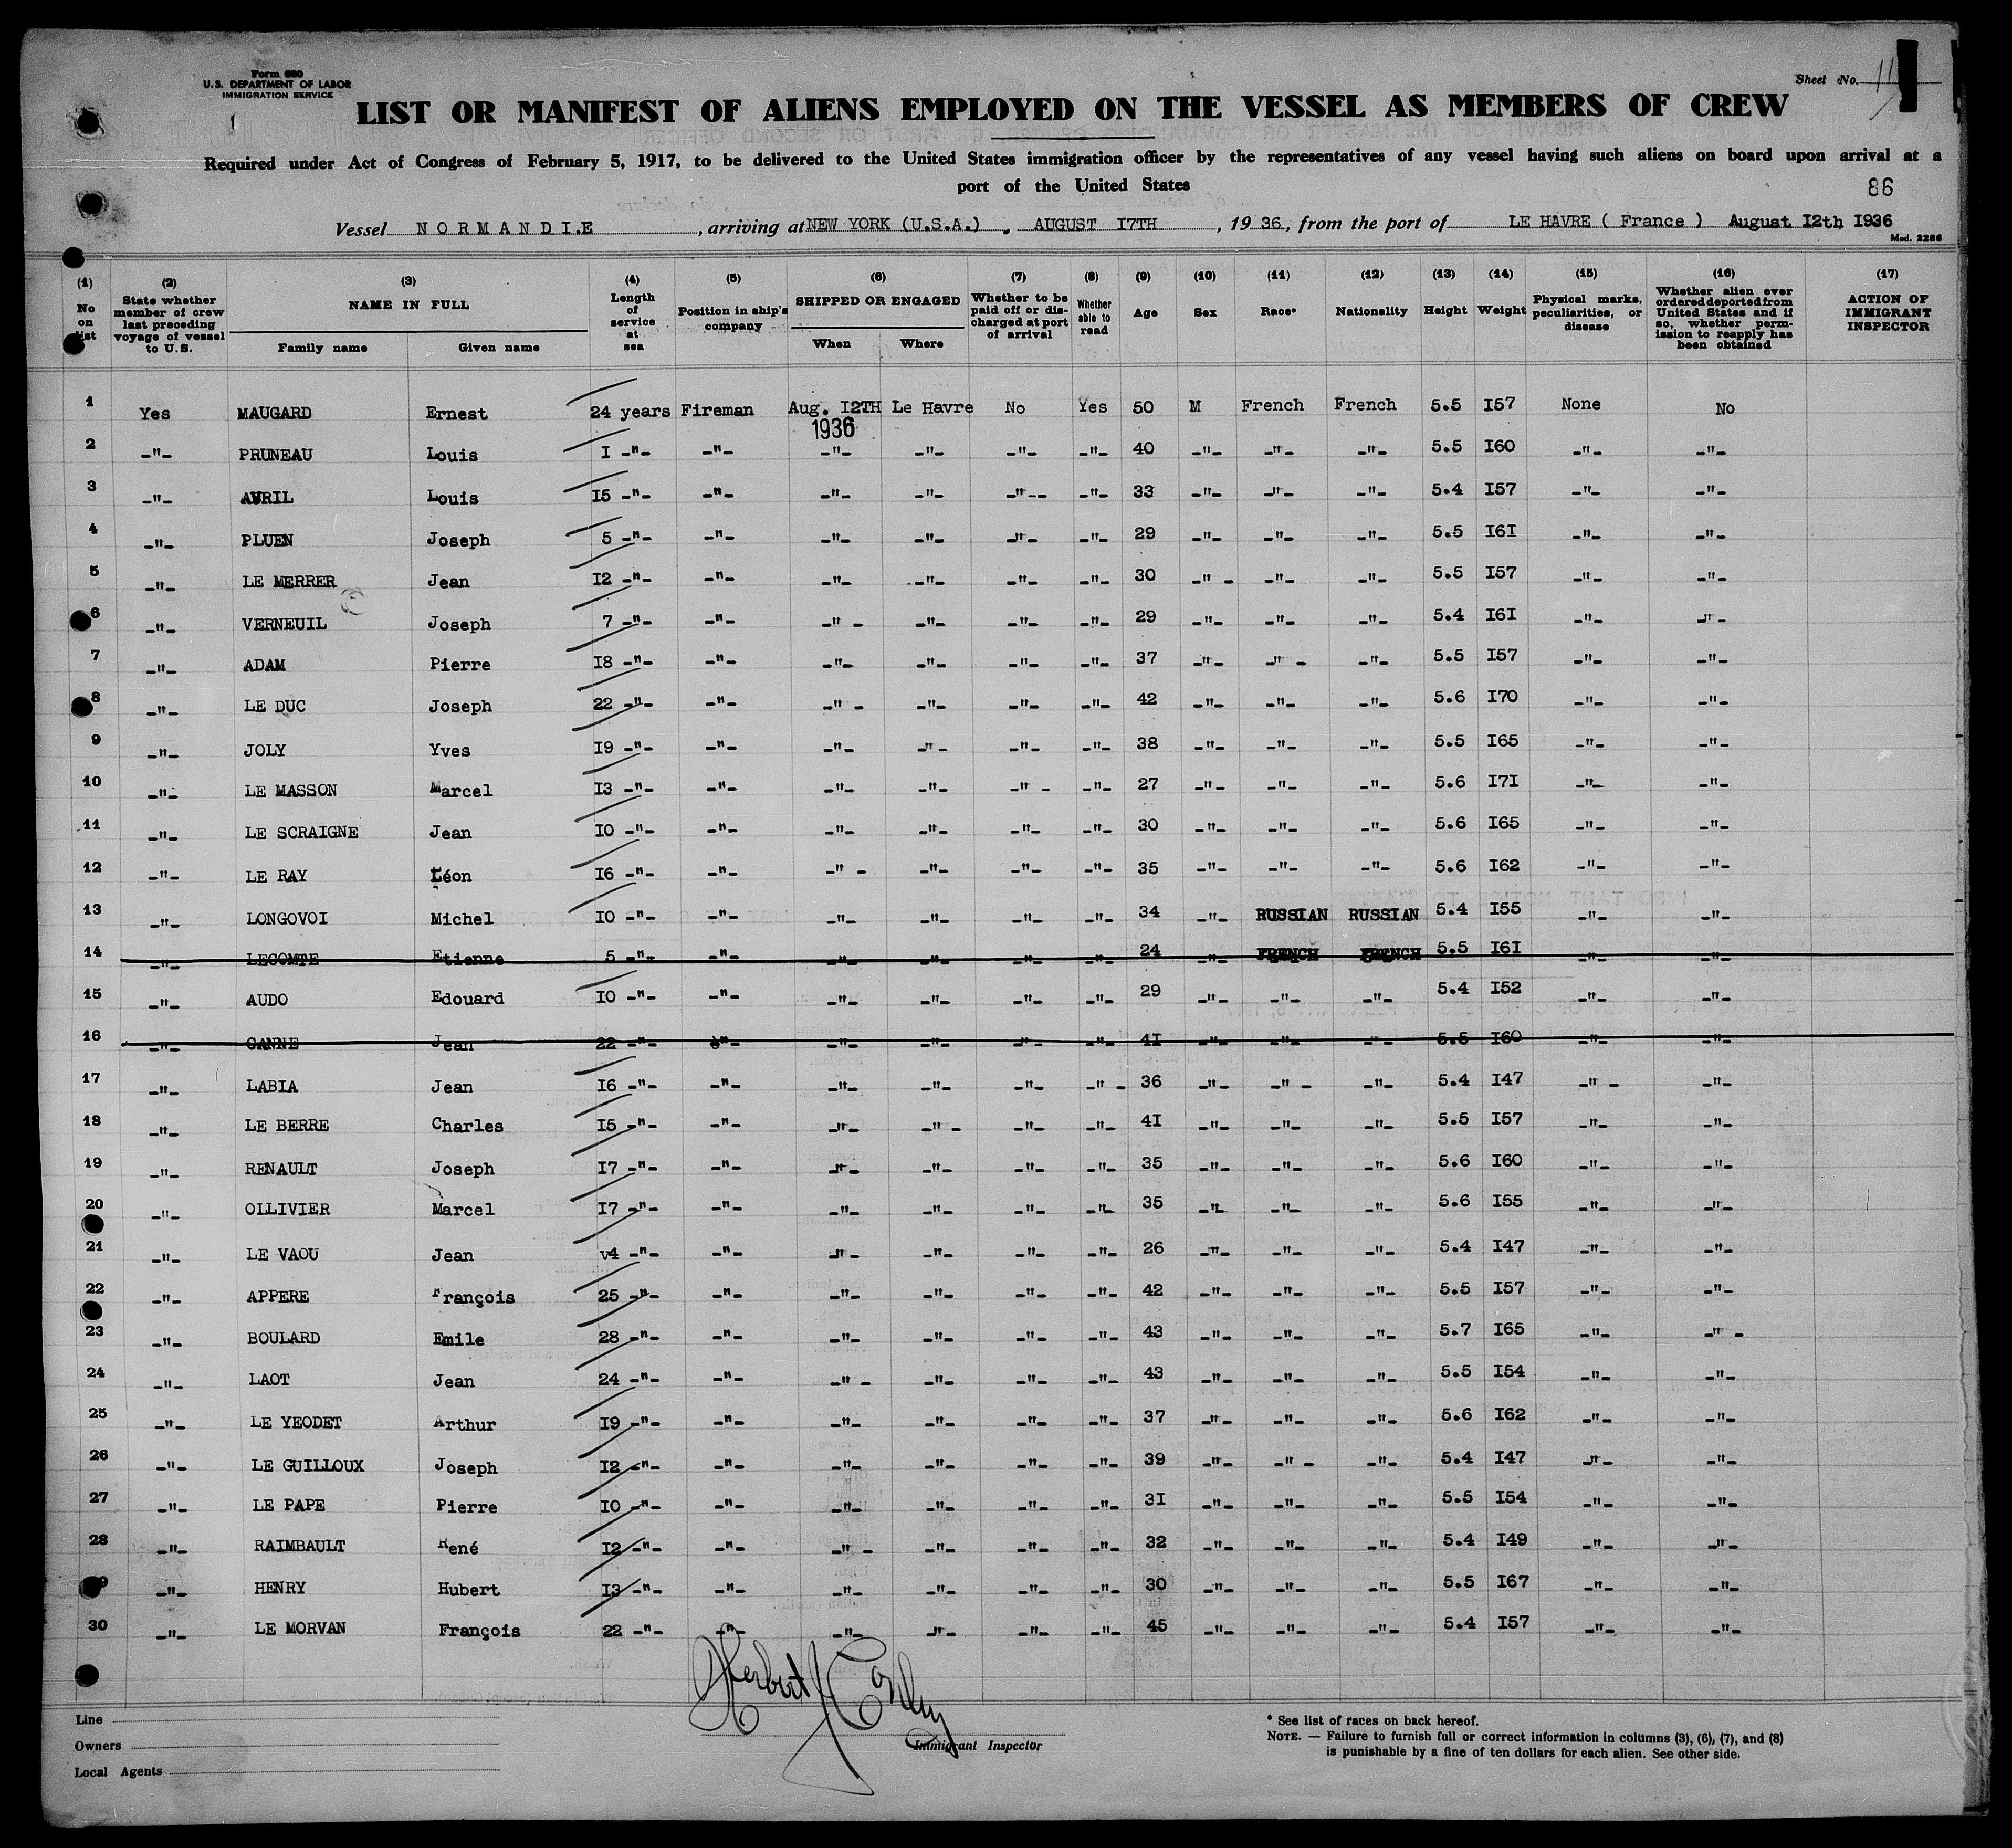 Form 680
U.S. DEPARTMENT OF LABOR
IMMIGRATION SERVICE
Sheet No. 11
LIST OR MANIFEST OF ALIENS EMPLOYED ON THE VESSEL AS MEMBERS OF CREW
Required under Act of Congress of February 5, 1917, to be delivered to the United States immigration officer by the representatives of any vessel having such aliens on board upon arrival at a
port of the United States
86
Vessel NORMANDIE, arriving at NEW YORK (U.S.A.). AUGUST I7TH, 1936, from the port of LE HAVRE ( France ) August I2th I936
Mod. 2286
(1) No on list (2) State whether member of crew last preceding voyage of vessel to U.S. (3) NAME IN FULL Family name Given name (4) Length of service at sea (5) Position in ship's company (6) SHIPPED OR ENGAGED When Where (7) Whether to be paid off or discharged at port of arrival (8) Whether able to read (9) Age (10) Sex (11) Race* (12) Nationality (13) Height (14) Weight (15) Physical marks, peculiarities, or disease (16) Whether alien ever ordered deported from United States and if so, whether permission to reapply has been obtained (17) ACTION OF IMMIGRANT INSPECTOR
1 Yes MAUGARD Ernest 24 years Fireman Aug. I2TH 1936 Le Havre No Yes 50 M French French 5.5 I57 None No
2 -"- PRUNEAU Louis I -"- -"- -"- -"- -"- -"- 40 -"- -"- -"- 5.5 I60 -"- -"-
3 -"- AVRIL Louis I5 -"- -"- -"- -"- -"-- -"- 33 -"- -"- -"- 5.4 I57 -"- -"-
4 -"- PLUEN Joseph 5 -"- -"- -"- -"- -"- -"- 29 -"- -"- -"- 5.5 I6I -"- -"-
5 -"- LE MERRER Jean I2 -"- -"- -"- -"- -"- -"- 30 -" - -"- -"- 5.5 I57 -"- -"-
6 -"- VERNEUIL Joseph 7 -"- -"- -" - -"- -"- -"- 29 -"- -"- -"- 5.4 I6I -"- -"-
7 -"- ADAM Pierre I8 -"- -"- -"- -"- -"- -"- 37 -"- -" - -"- 5.5 I57 -"- -"-
8 -"- LE DUC Joseph 22 -"- -"- -" - -"- -"- -"- 42 -"- -"- -"- 5.6 I70 -"- -"-
9 -"- JOLY Yves I9 -"- -"- -"- -" - -"- -"- 38 -"- -"- -"- 5.5 I65 -"- -"-
10 -"- LE MASSON Marcel I3 -"- -"- -"- -"- -" - -"- 27 -"- -"- -"- 5.6 I7I -"- -"-
11 -"- LE SCRAIGNE Jean IO -"- -"- -"- -"- -"- -"- 30 -"- -"- -"- 5.6 I65 -"- -"-
12 -"- LE RAY Léon I6 -"- -"- -" - -"- -"- -"- 35 -"- -"- -"- 5.6 I62 -"- -"-
13 -"- LONGOVOI Michel IO -"- -"- -"- -"- -"- -"- 34 -"- RUSSIAN RUSSIAN 5.4 I55 -"- -"-
14 -"- LECOMTE Etienne 5 -"- -"- -"- -"- -"- -"- 24 -"- FRENCH FRENCH 5.5 I6I -"- -"-
15 -"- AUDO Edouard IO -"- -"- -"- -"- -"- -"- 29 -"- -"- -"- 5.4 I52 -"- -"-
16 -"- CANNE Jean 22 -"- -"- -"- -"- -"- -"- 4I -"- -"- -"- 5.5 I60 -"- -"-
17 -"- LABIA Jean I6 -"- -"- -"- -"- -"- -" - 36 -"- -" - -"- 5.4 I47 -" - -"-
18 -"- LE BERRE Charles I5 -"- -"- -"- -" - -"- -"- 4I -"- -"- -"- 5.5 I57 -"- -"-
19 -"- RENAULT Joseph I7 -"- -"- -"- -"- -"- -"- 35 -"- -"- -"- 5.6 I60 -"- -"-
20 -"- OLLIVIER Marcel I7 -"- -"- -"- -"- -"- -"- 35 -"- -"- -"- 5.6 I55 -"- -"-
21 -"- LE VAOU Jean v4 -"- -"- -"- -"- -"- -"- 26 -"- -"- -"- 5.4 I47 -"- -"-
22 -"- APPERE François 25 -"- -"- -"- -"- -"- -"- 42 -"- -"- -"- 5.5 I57 -"- -"-
23 -"- BOULARD Emile 28 -"- -"- -"- -"- -"- -"- 43 -"- -"- -"- 5.7 I65 -"- -" -
24 -"- LAOT Jean 24 -"- -"- -" - -"- -"- -"- 43 -"- -"- -"- 5.5 I54 -"- -"-
25 -"- LE YEODET Arthur I9 -"- -"- -"- -"- -"- -"- 37 -"- -"- -"- 5.6 I62 -"- -"-
26 -"- LE GUILLOUX Joseph I2 -"- -"- -"- -"- -"- -"- 39 -"- -" - -"- 5.4 I47 -"- -"-
27 -"- LE PAPE Pierre IO -"- -"- -"- -"- -"- -"- 3I -"- -"- -"- 5.5 I54 -"- -"-
28 -"- RAIMBAULT René I2 -"- -"- -" - -"- -"- -"- 32 -"- -"- -"- 5.4 I49 -"- -"-
29 -"- HENRY Hubert I3 -"- -"- -"- -"- -"- -"- 30 -"- -"- -"- 5.5 I67 -"- -"-
30 -"- LE MORVAN François 22 -"- -"- -"- -"- -"- -"- 45 -"- -"- -"- 5.4 I57 -"- -"-
Herbert J Conley
Immigrant Inspector
Line
Owners
Local Agents
* See list of races on back hereof.
NOTE. — Failure to furnish full or correct information in columns (3), (6), (7), and (8)
is punishable by a fine of ten dollars for each alien. See other side.